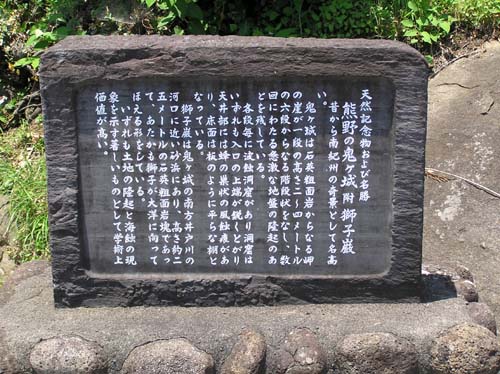 天然記念物および名勝
熊野の鬼ヶ城 附 獅子巌
昔から南紀州の奇景として名高
い。
鬼ヶ城は石英粗面岩からなる岬
の崖が一段の高さ二〜四メートル
の六段からなる階段状をなし、数
回にわたる急激な地盤の隆起のあ
とを残している。
各段毎に波蝕洞窟があり洞窟は
いずれも入口の上端が鋭くとがり
天井部には蜂の巣状の風蝕痕があ
り、底面は板のように平らな棚と
なっている
獅子巌は鬼ヶ城の南方井戸川の
河口に近い砂浜にあり、高さ約二
五メートルの石英粗面岩塊であっ
て、あたかも獅子が大洋に向って
ほえる形をしている。
いずれも土地の隆起と海蝕の現
象を示す著しいものとして学術上
価値が高い。